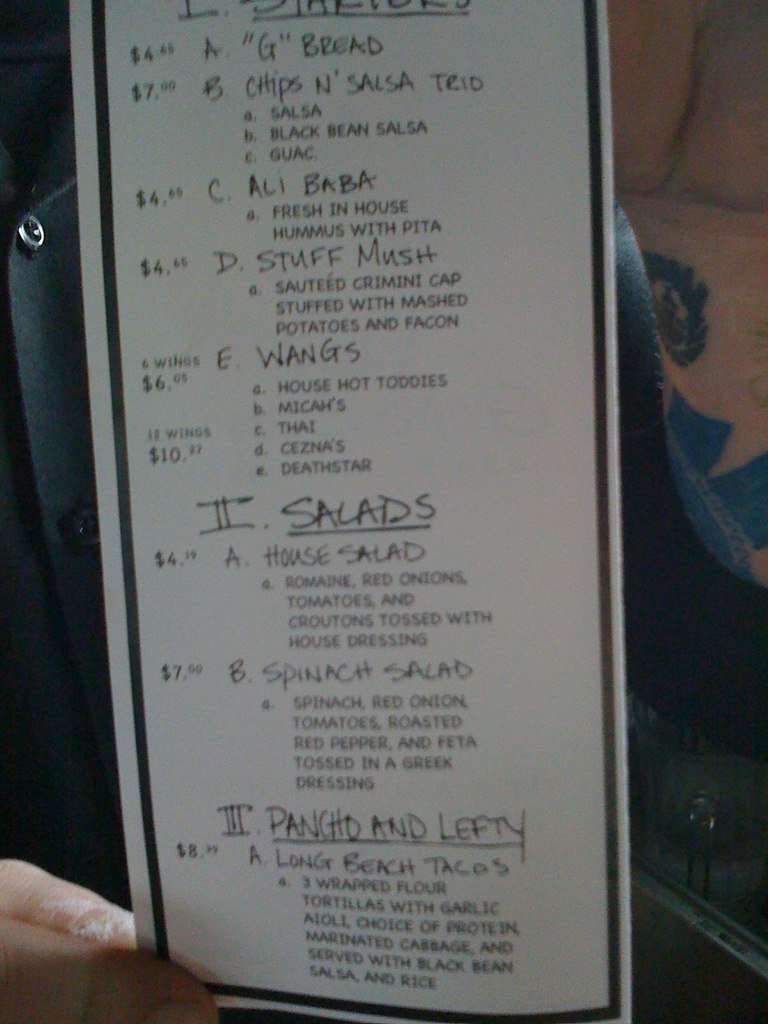 I. STARTERS
$4.65 A. "G" BREAD
$7.00 B. CHIPS N' SALSA TRIO
a. SALSA
b. BLACK BEAN SALSA
c. GUAC.
$4.65 C. ALI BABA
a. FRESH IN HOUSE
HUMMUS WITH PITA
$4.65 D. STUFF MUSH
a. SAUTEÉD CRIMINI CAP
STUFFED WITH MASHED
POTATOES AND FACON
6 WINGS E. WANGS
$6.05
a. HOUSE HOT TODDIES
b. MICAH'S
WINGS c. THAI
$10. d. CEZNA'S
e. DEATHSTAR
II. SALADS
$4. A. HOUSE SALAD
a. ROMAINE, RED ONIONS,
TOMATOES, AND
CROUTONS TOSSED WITH
HOUSE DRESSING
$7.00 B. SPINACH SALAD
a. SPINACH, RED ONION,
TOMATOES, ROASTED
RED PEPPER, AND FETA
TOSSED IN A GREEK
DRESSING
III. PANCHO AND LEFTY
$8. A. LONG BEACH TACOS
a. 3 WRAPPED FLOUR
TORTILLAS WITH GARLIC
AIOLI, CHOICE OF PROTEIN,
MARINATED CABBAGE, AND
SERVED WITH BLACK BEAN
SALSA, AND RICE